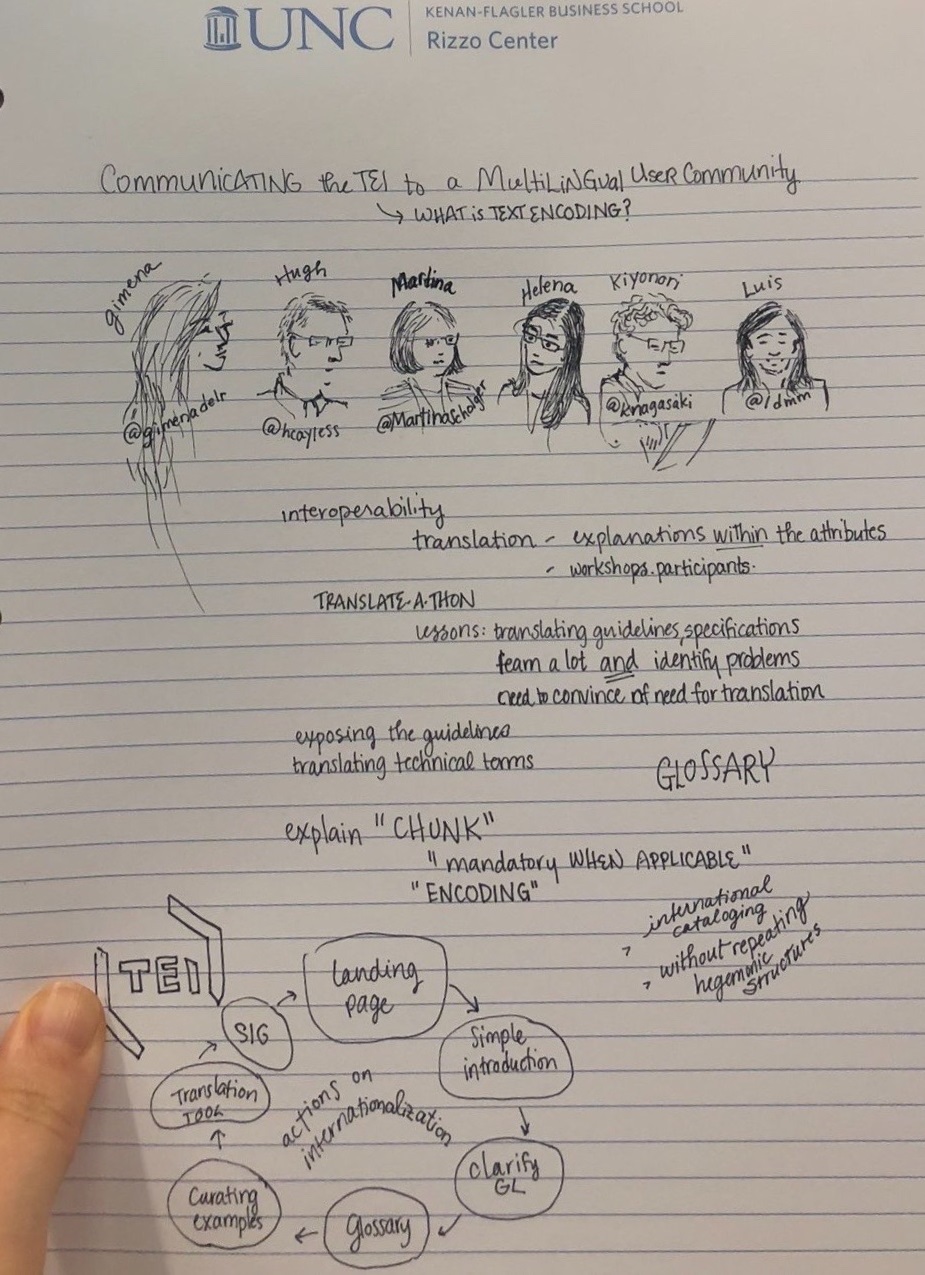 UNC
KENAN-FLAGLER BUSINESS SCHOOL
Rizzo Center
COMMUNICATING the TEI to a MULTILINGUAL USER Community
↳ WHAT is TEXT ENCODING?
gimena
Hugh
Martina
Helena
Kiyonori
Luis
@gimenadelr
@hcayless
@MartinaScholger
@knagasaki
@ldmm
interoperability
translation - explanations within the attributes
- workshops.participants.
TRANSLATE-A-THON
lessons: translating guidelines, specifications
learn a lot and identify problems
need to convince of need for translation
exposing the guidelines
translating technical terms
GLOSSARY
explain "CHUNK"
"mandatory WHEN APPLICABLE"
"ENCODING"
international
cataloging
without repeating
hegemonic
structures
TEI
SIG
Landing
page
Simple
introduction
Clarify
GL
Glossary
Curating
examples
Translation
TOOL
actions on
internationalization